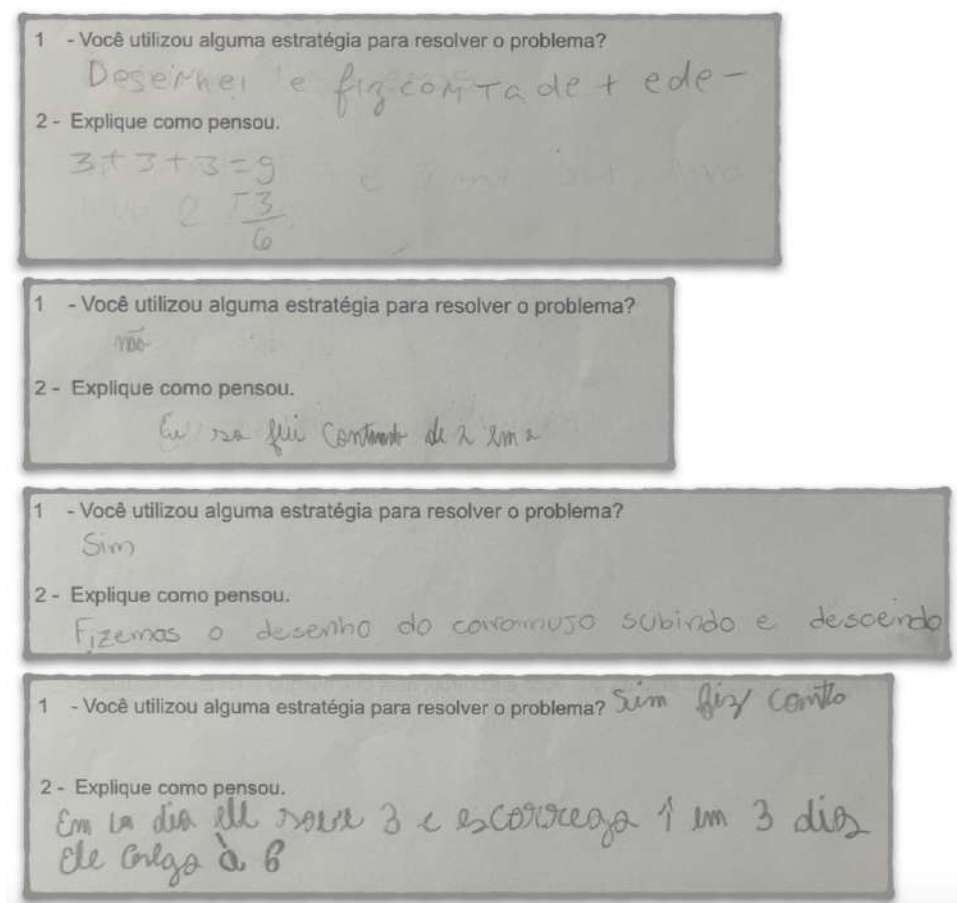 1 - Você utilizou alguma estratégia para resolver o problema?
Deseirhei e fiz conta de + e de -
2 - Explique como pensou.
3+3+3=9
-3
6
1 - Você utilizou alguma estratégia para resolver o problema?
não
2 - Explique como pensou.
Eu so fui contando de 2 em 2
1 - Você utilizou alguma estratégia para resolver o problema?
Sim
2 - Explique como pensou.
Fizemos o desenho do caramujo subindo e descendo
1 - Você utilizou alguma estratégia para resolver o problema? Sim fiz conta
2 - Explique como pensou.
Em dia ele 3 e escorrega 1 em 3 dias
ele à 6